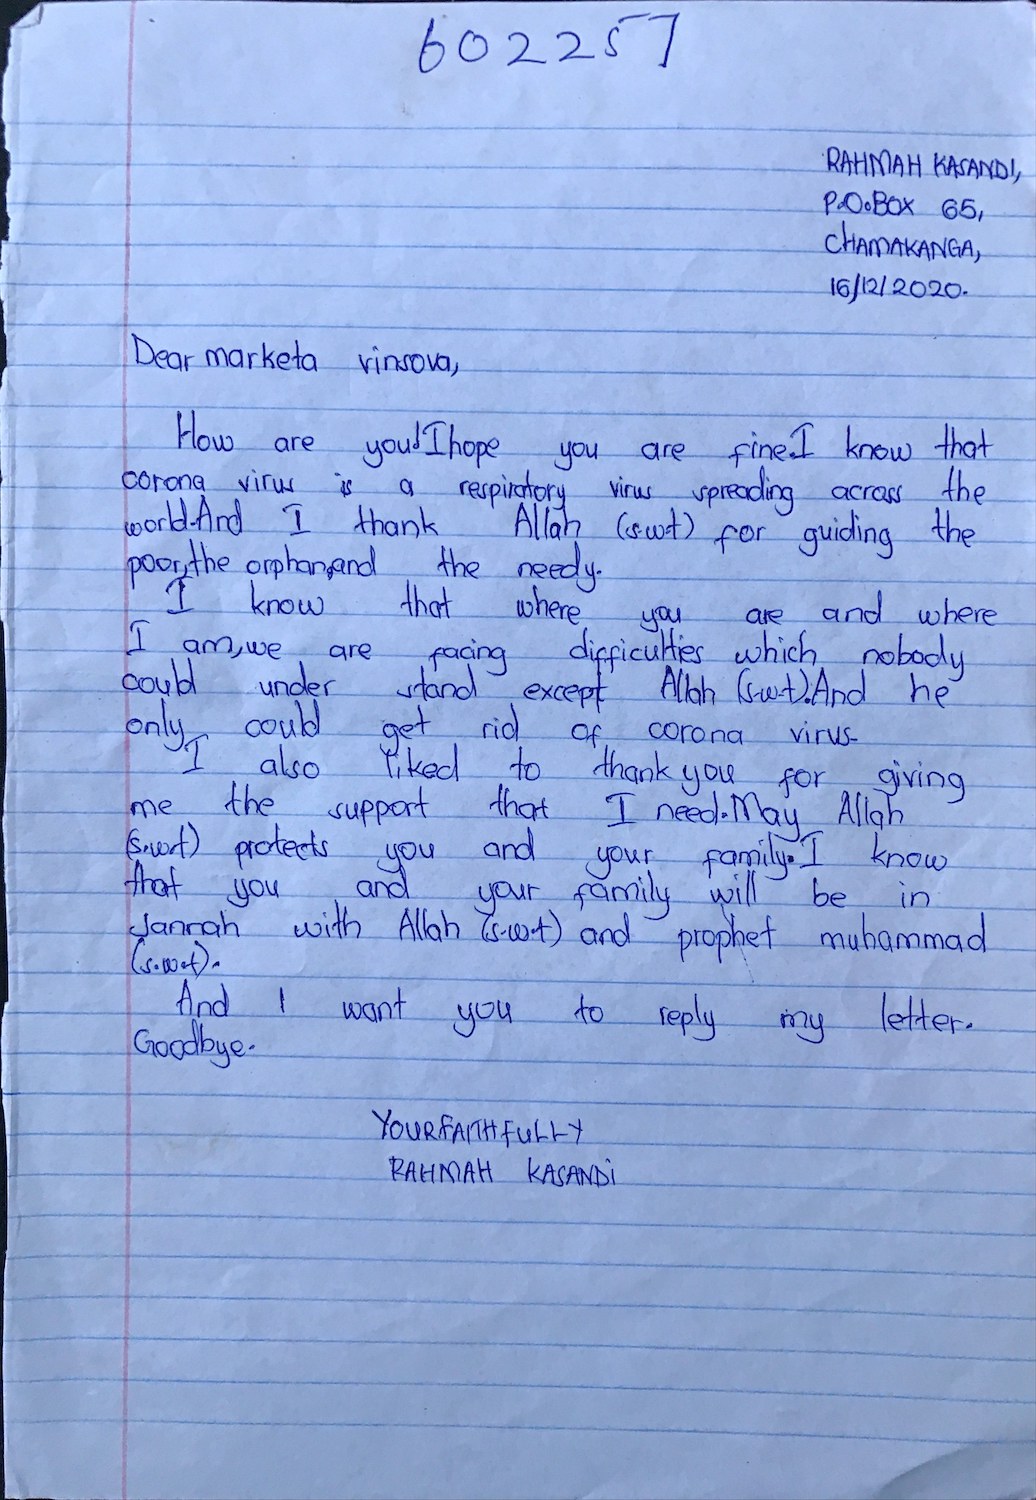 602257
RAHMAH KASANDI,
P.O.BOX 65,
CHAMAKANGA,
16/12/2020.
Dear marketa vinsova,
How are you!I hope you are fine.I know that
corona virus is a respiratory virus spreading across the
world.And I thank Allah (s.w.t) for guiding the
poor,the orphan,and the needy.
I know that where you are and where
I am,we are facing difficulties which nobody
could under stand except Allah (s.w.t).And he
only could get rid of corona virus.
I also liked to thank you for giving
me the support that I need.May Allah
(s.w.t) protects you and your family.I know
that you and your family will be in
Jannah with Allah (s.w.t) and prophet muhammad
(s.w.t).
And I want you to reply my letter.
Goodbye.
YOUR FAITH FULLY
RAHMAH KASANDI